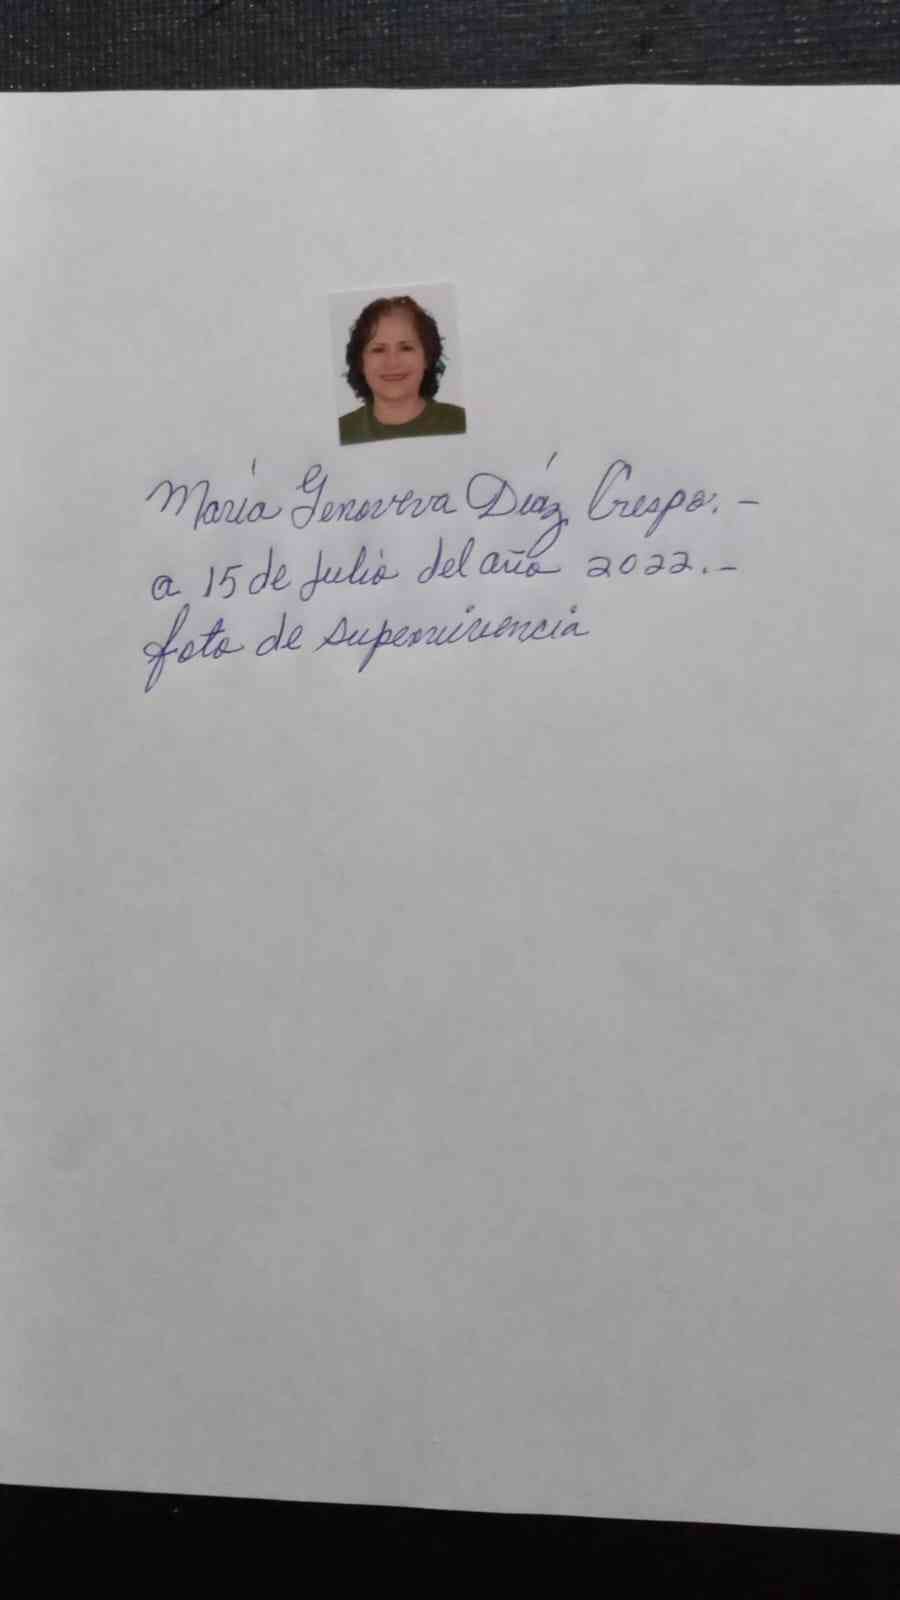 María Genoveva Díaz Crespo.-
a 15 de Julio del año 2022.-
foto de supervivencia